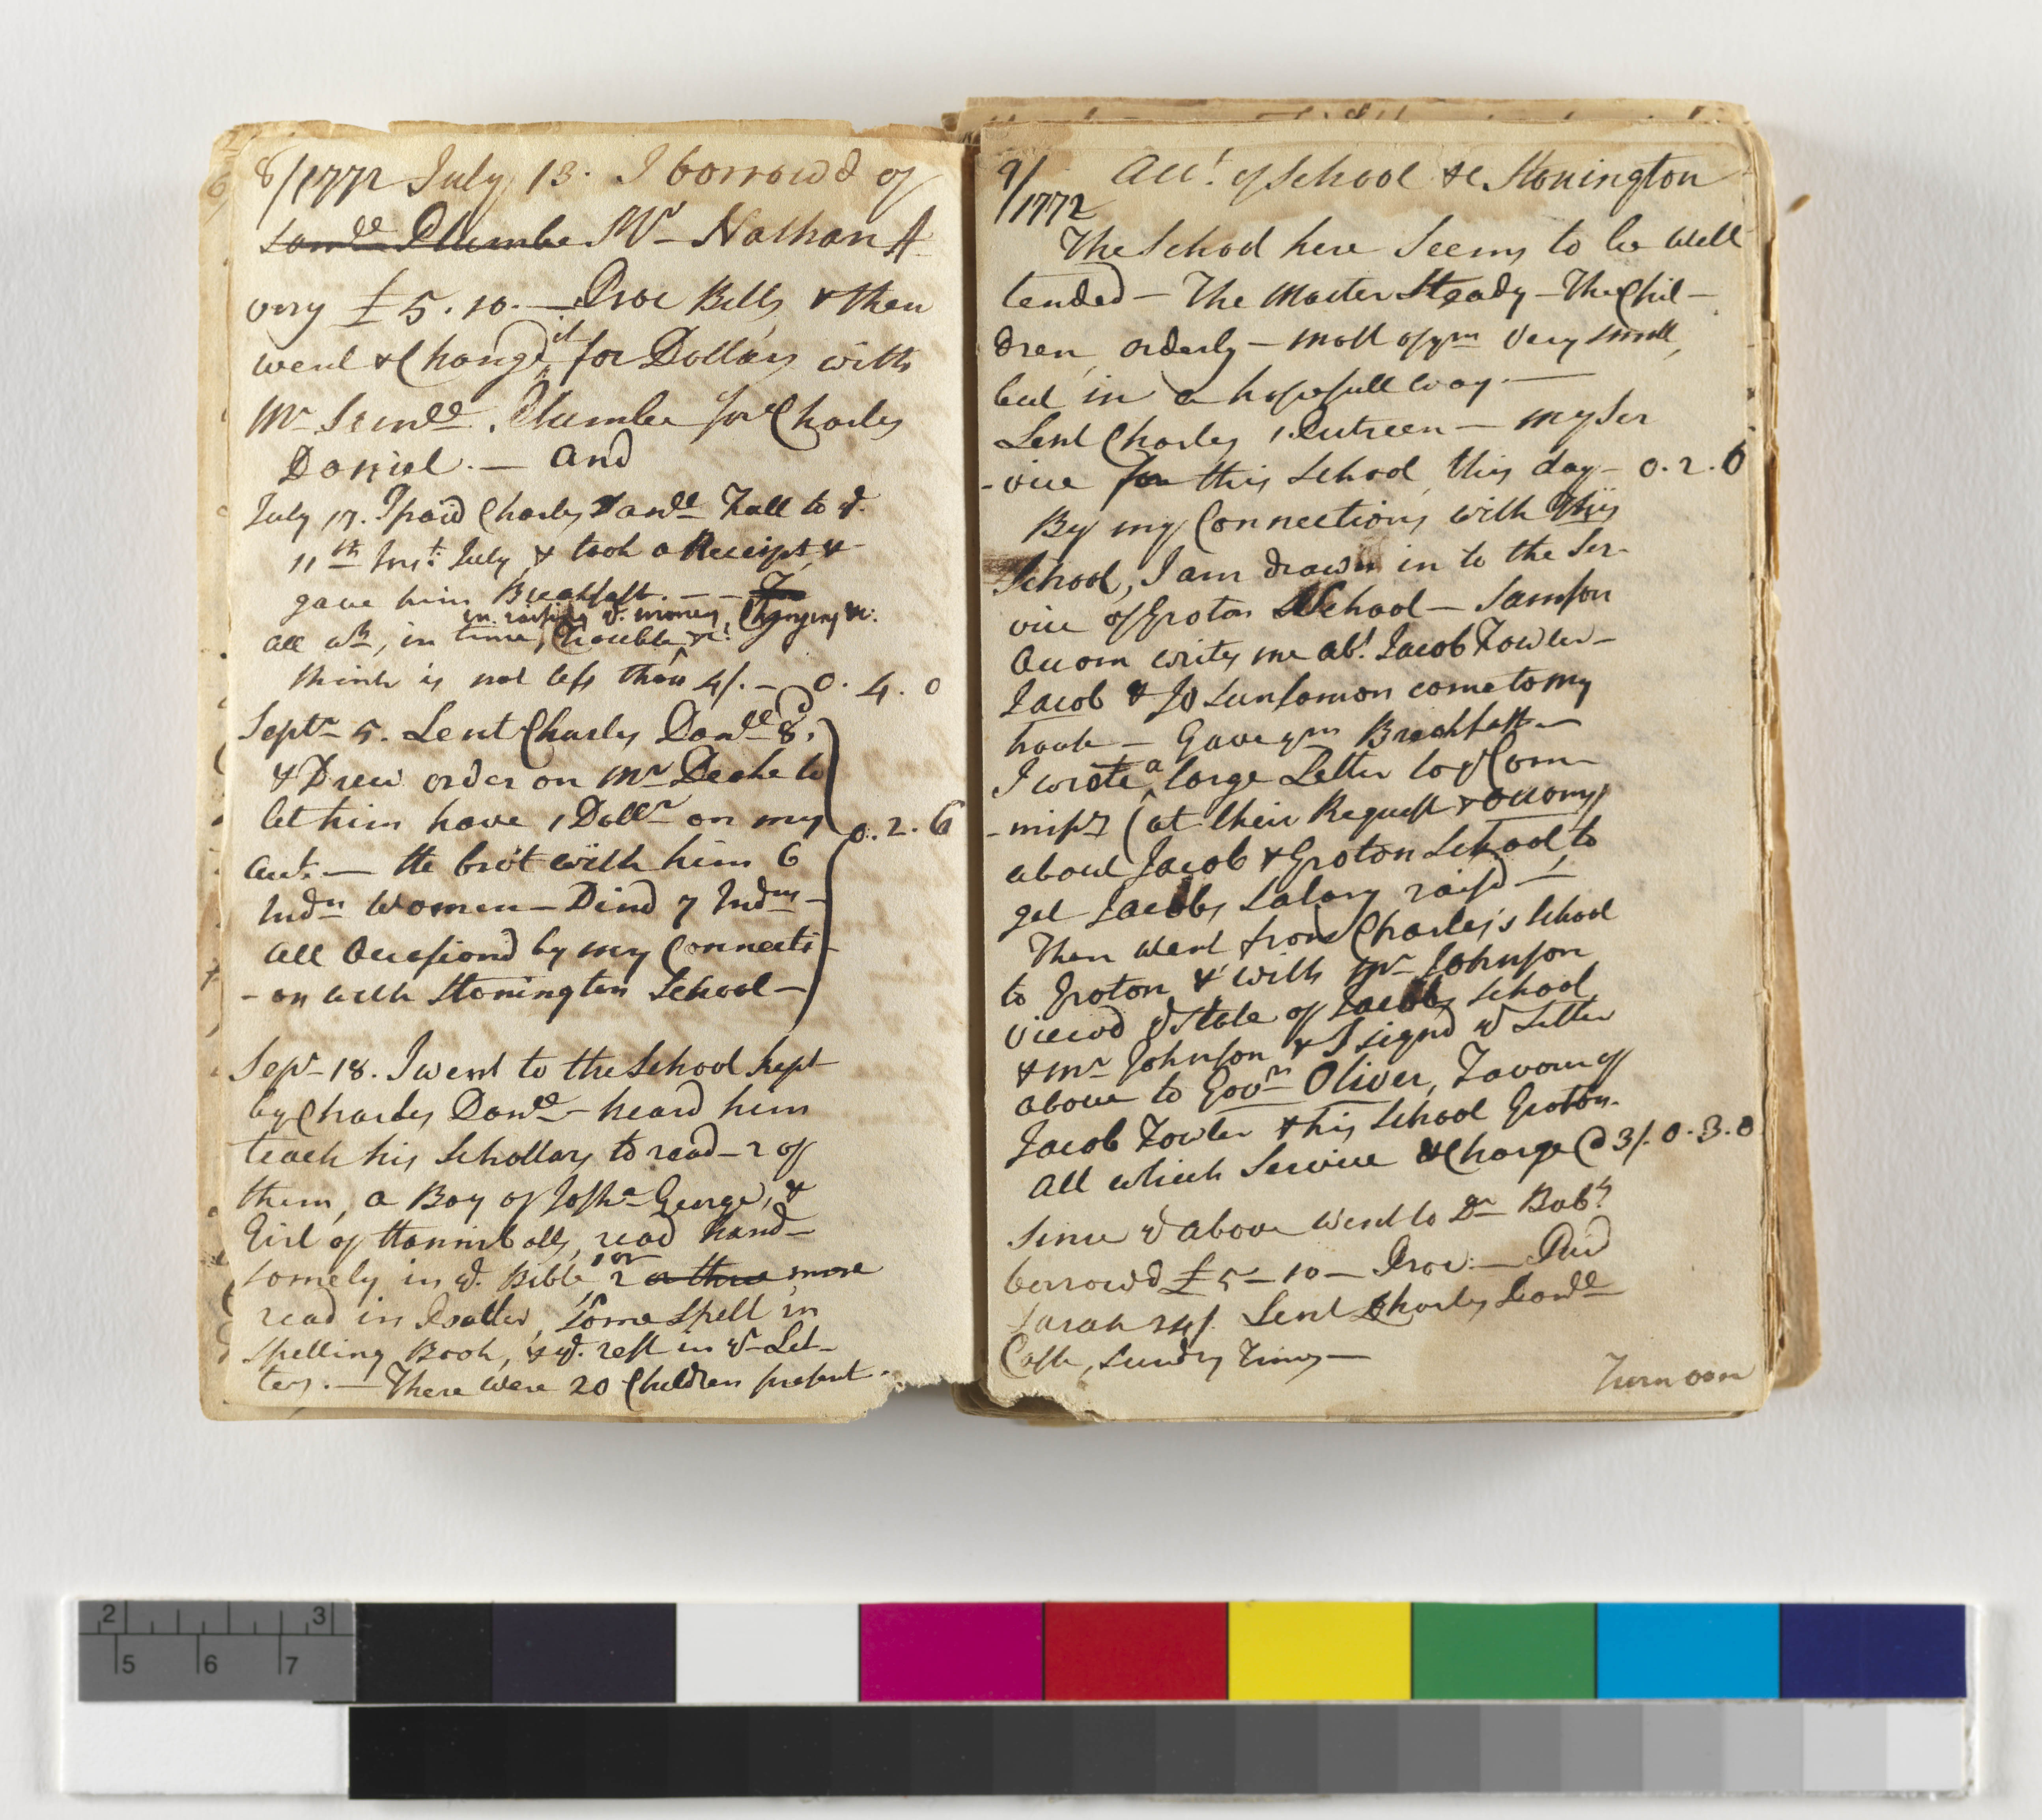 8/1772 July 13. I borrowd of
Samll Plumbe Mr Nathan A
very £5.10.— Proc Bills, & then
went & Changd it for Dollars with
Mr Samll. Plumbe for Charles
Daniel.— and
July 17. I paid Charles Danll Fall to ye.
11th Inst. July & took a Receipt &
gave him Breakfast.—
in raising ye. money, Changing &c.
all wh, in time, Trouble &c.
think is not less than 4/.— 0. 4. 0
Septr 5. Lent Charles Danll 8/
& Drew order on Mr Deake to
let him have 1 Dollr on my 0. 2. 6
acct.— He brôt with him 6
Indn Women — Dind 7 Indns —
all Occasiond by my Connecti-
-on with Stonington School —
Sepr 18. I went to the School kept
by Charles Danll — heard him
teach his Schollars to read — 2 of
them, a Boy of Josha George, &
Girl of Hannibals, read hand-
somely in ye. Bible, 1 or 2 or three more
read in Psalter, some spell in
Spelling Book, & ye. rest in ye Let-
ters.— There were 20 Children present.
9/1772
Acct. of School &c Stonington
The School here seems to be well
tended — The Master Steady — The Chil-
dren, orderly — most of ym very small,
but in a hopefull way.—
Lent Charles 1. — my Ser
-vice for this School, this day — 0. 2. 6
By my Connections with this
School, I am drawn in to the Ser-
vice of Groton School — Samson
Occom writes me abt. Jacob Fowler —
Jacob & Jo come to my
house — Gave ym Breakfast —
I wrote a large Letter to ye Com-
-missrs (at their Request & Occoms)
about Jacob & Groton School, to
get Jacobs Salary raisd —
Then went from Charles's School
to Groton & with Mr Johnson
viewd ye State of Jacobs School
& Mr Johnson & I signd ye Letter
above to Govr Oliver, Favour of
Jacob Fowler & his School Groton.
All which Service & Charge @ 3/. 0. 3. 0
Since ye above went to Dr Bab
borrowd £5—10— Proc.— Paid
Sarah 24/. Lent Charles Danll
Cash, Sundry Times —
Turn over
2 3
5 6 7